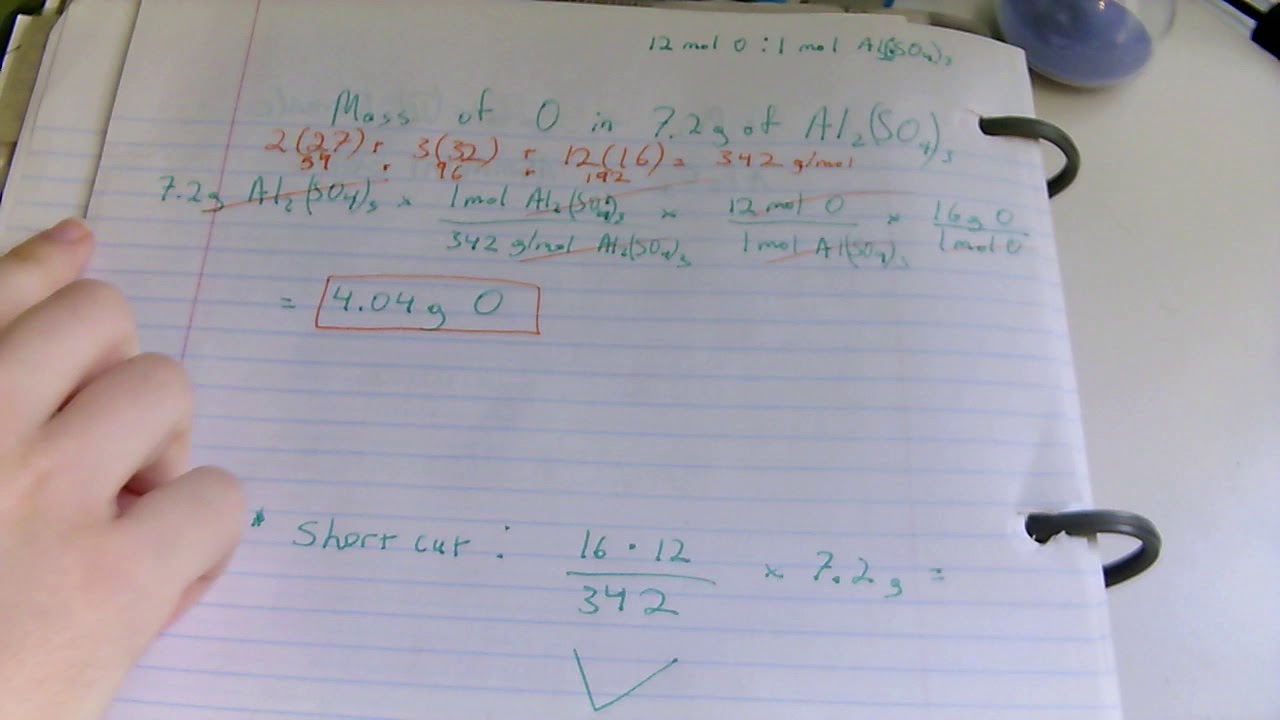 12 mol O : 1 mol Al(SO4)3
Mass of O in 7.2g of Al2(SO4)3
2(27) + 3(32) + 12(16) = 342 g/mol
54 + 96 + 192
7.2g Al2(SO4)3 × 1 mol Al2(SO4)3 × 12 mol O × 16g O
342 g/mol Al2(SO4)3 1 mol Al(SO4)3 1 mol O
= 4.04g O
* Short cut : 16 · 12 × 7.2g =
342